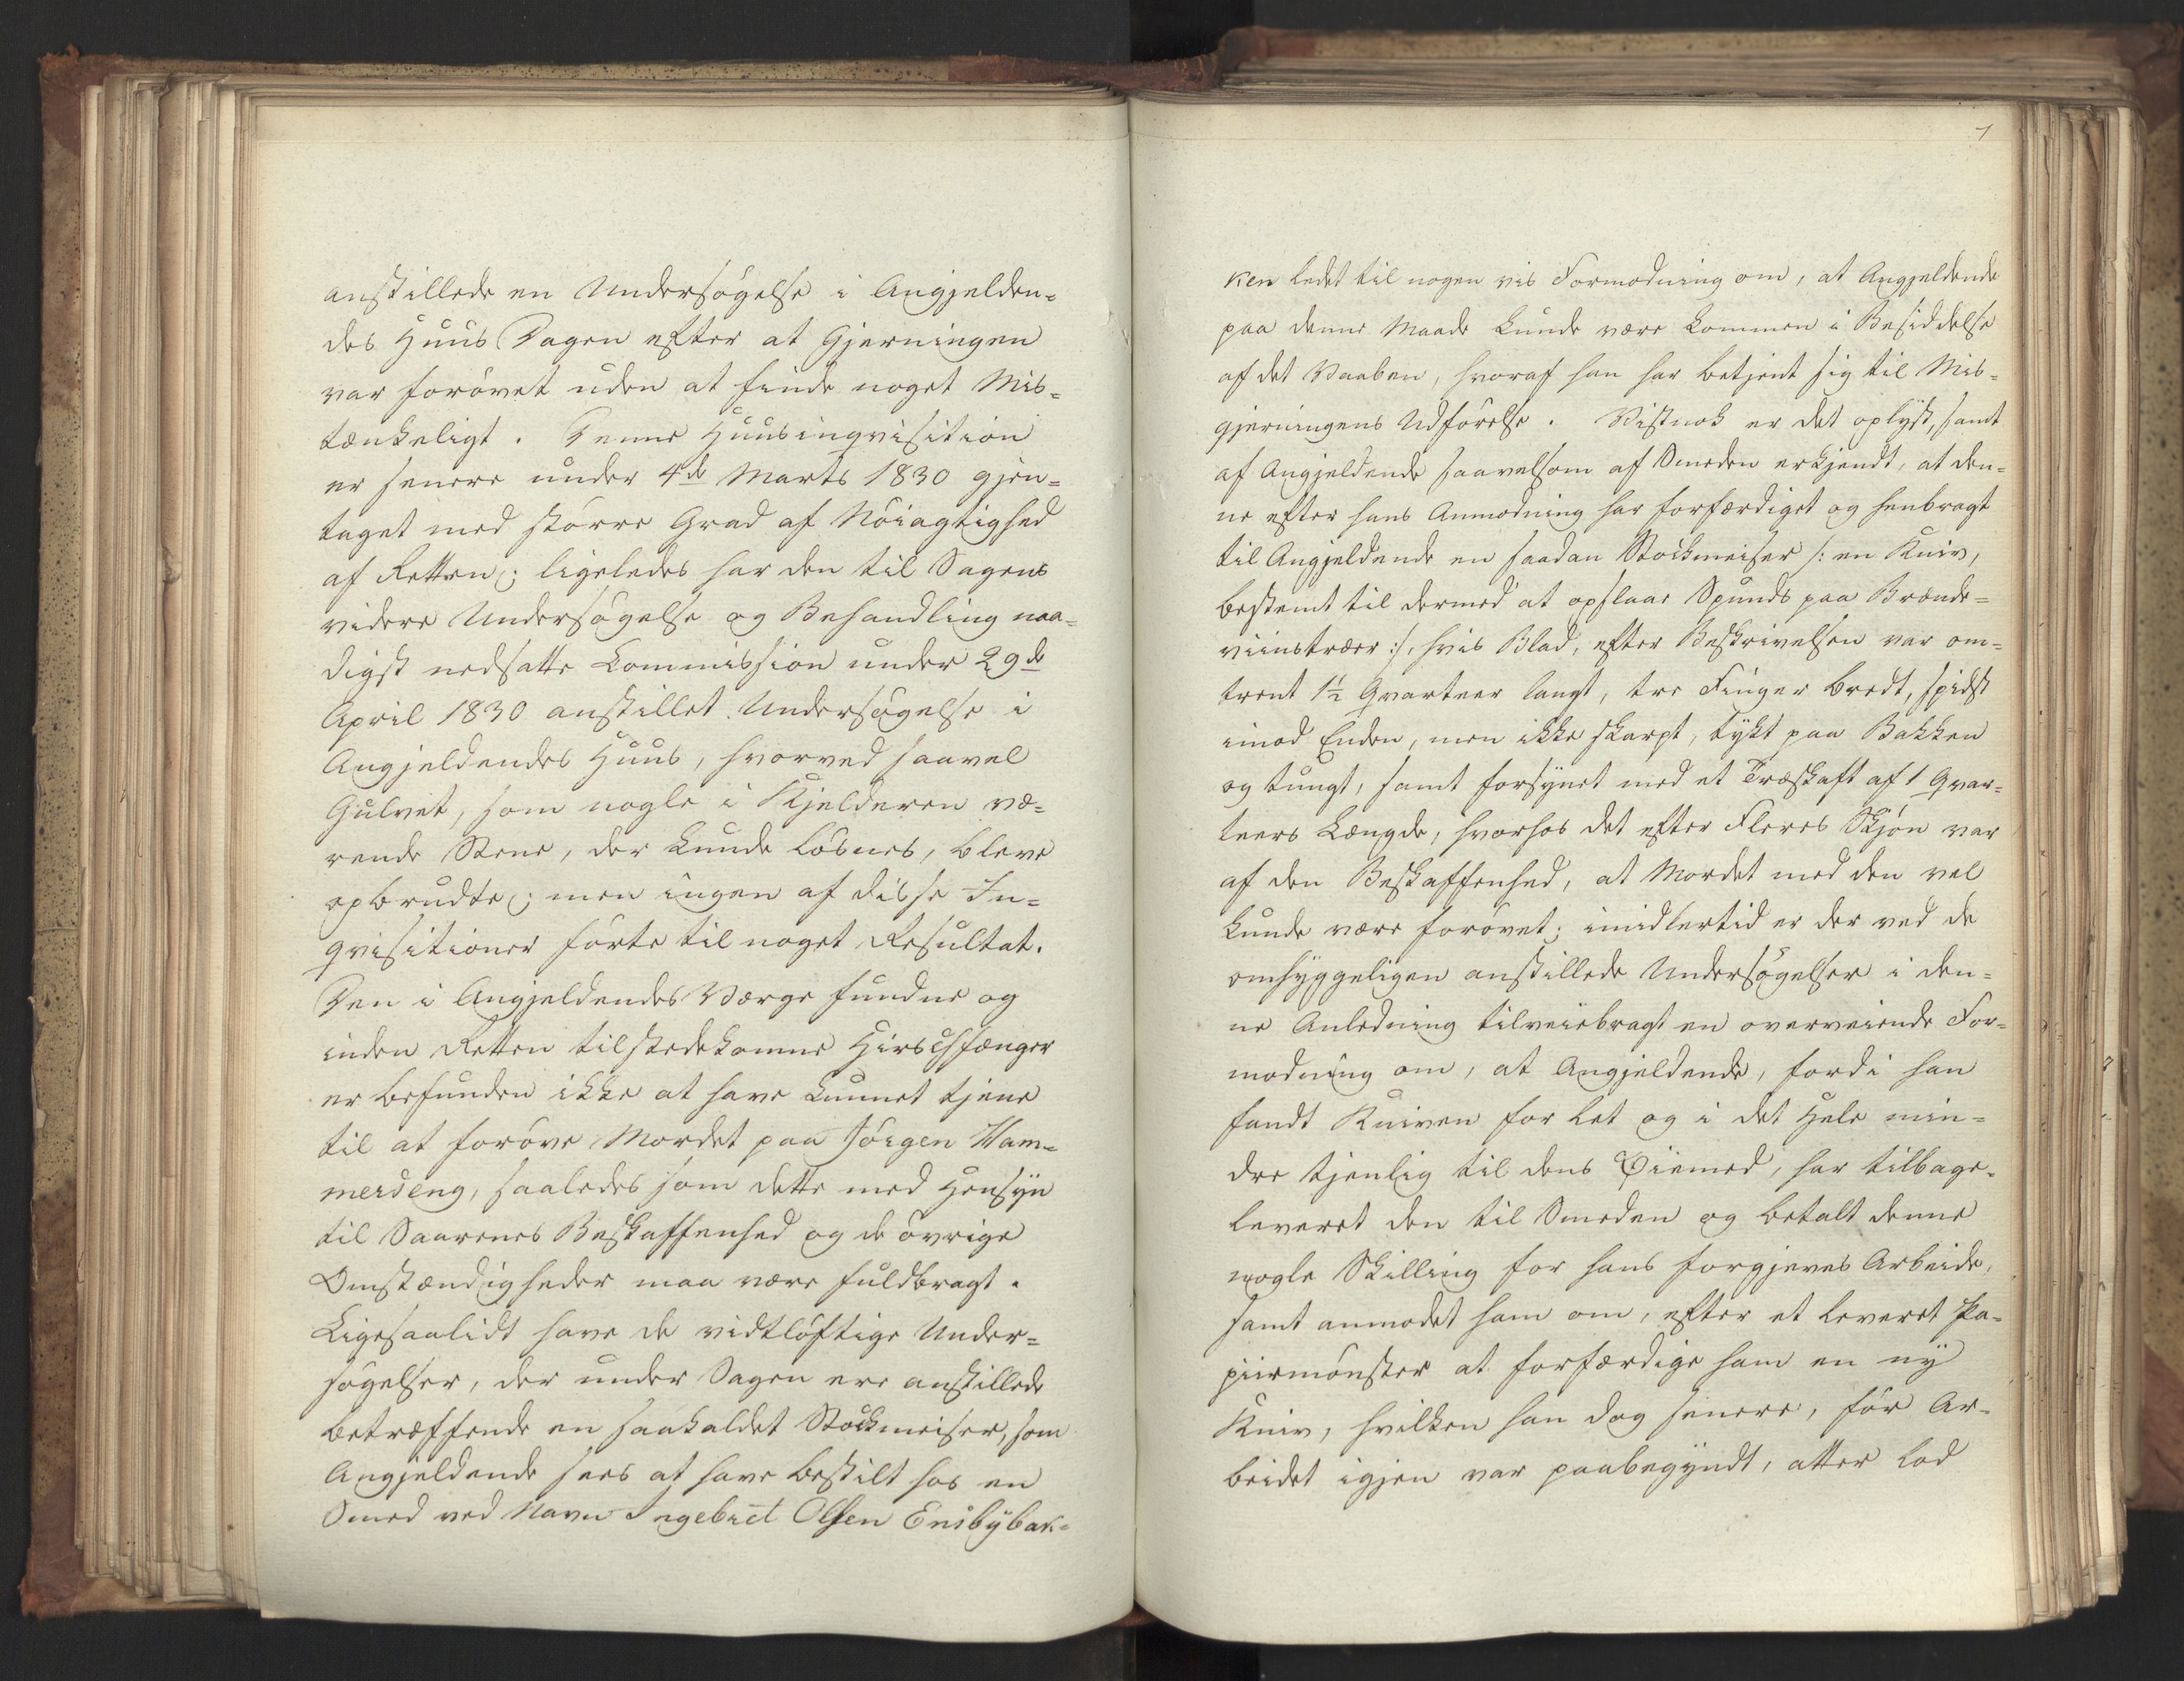 anstillede en Undersögelse i Angjelden-
des Huus Dagen efter at Gjerningen
var forövet uden at finde noget Mis-
tænkeligt. Denne Huusinqvisition
er senere under 4de Marts 1830 gjen-
taget med större Grad af Nöiagtighed
af Retten; ligeledes har den til Sagens
videre Undersögelse og Behandling naa-
digst nedsatte Commission under 29de
April 1830 anstillet Undersögelse i
Angjeldendes Huus, hvorved saavel
Gulvet, som nogle i Kjelderen væ-
rende Stene, der kunde lösnes, bleve
opbrudte; men ingen af disse In-
qvisitioner förte til noget Resultat.
Den i Angjeldendes Værge fundne og
inden Retten tilstedekomne Hirschfænger
er befunden ikke at have kunnet tjene
til at foröve Mordet paa Jörgen Ham-
merseng, saaledes som dette med Hensyn
til Saarenes Beskaffenhed og de övrige
Omstændigheder maa være fuldbragt.
Ligesaalidt have de vidtlöftige Under-
sögelser, der under Sagen ere anstillede
betræffende en saakaldet Stockmeiser, som
Angjeldende sees at have bestilt hos en
Smed ved Navn Ingebret Olsen Ensbybak-
7
ken ledet til nogen vis Formodning om, at Angjeldende
paa denne Maade kunde være kommen i Besiddelse
af det Vaaben, hvoraf han har betjent sig til Mis-
gjerningens Udförelse. Vistnok er det oplyst, samt
af Angjeldende saavelsom af Smeden erkjendt, at den-
ne efter hans Anmodning har forfærdiget og henbragt
til Angjeldende en saadan Stockmeiser /: en Kniv,
bestemt til dermed at opslaae Spunds paa Brænde-
viinstræer :/, hvis Blad, efter Beskrivelsen var om-
trent 1½ Qvarteer langt, tre Finger bredt, spidst
imod Enden, men ikke skarpt, tykt paa Bakken
og tungt, samt forsynet med et Træskaft af 1 Qvar-
teers Længde, hvorhos det efter Fleres Skjön var
af den Beskaffenhed, at Mordet med den vel
kunde være forövet; imidlertid er der ved de
omhyggeligen anstillede Undersögelser i den-
ne Anledning tilveiebragt en overveiende For-
modning om, at Angjeldende, fordi han
fandt Kniven for let og i det Hele min-
dre tjenlig til dens Öiemed, har tilbage-
leveret den til Smeden og betalt denne
nogle Skilling for hans forgjeves Arbeide,
samt anmodet ham om, efter et leveret Pa-
piirmönster at forfærdige ham en ny
Kniv, hvilken han dog senere, för Ar-
beidet igjen var paabegyndt, atter lod